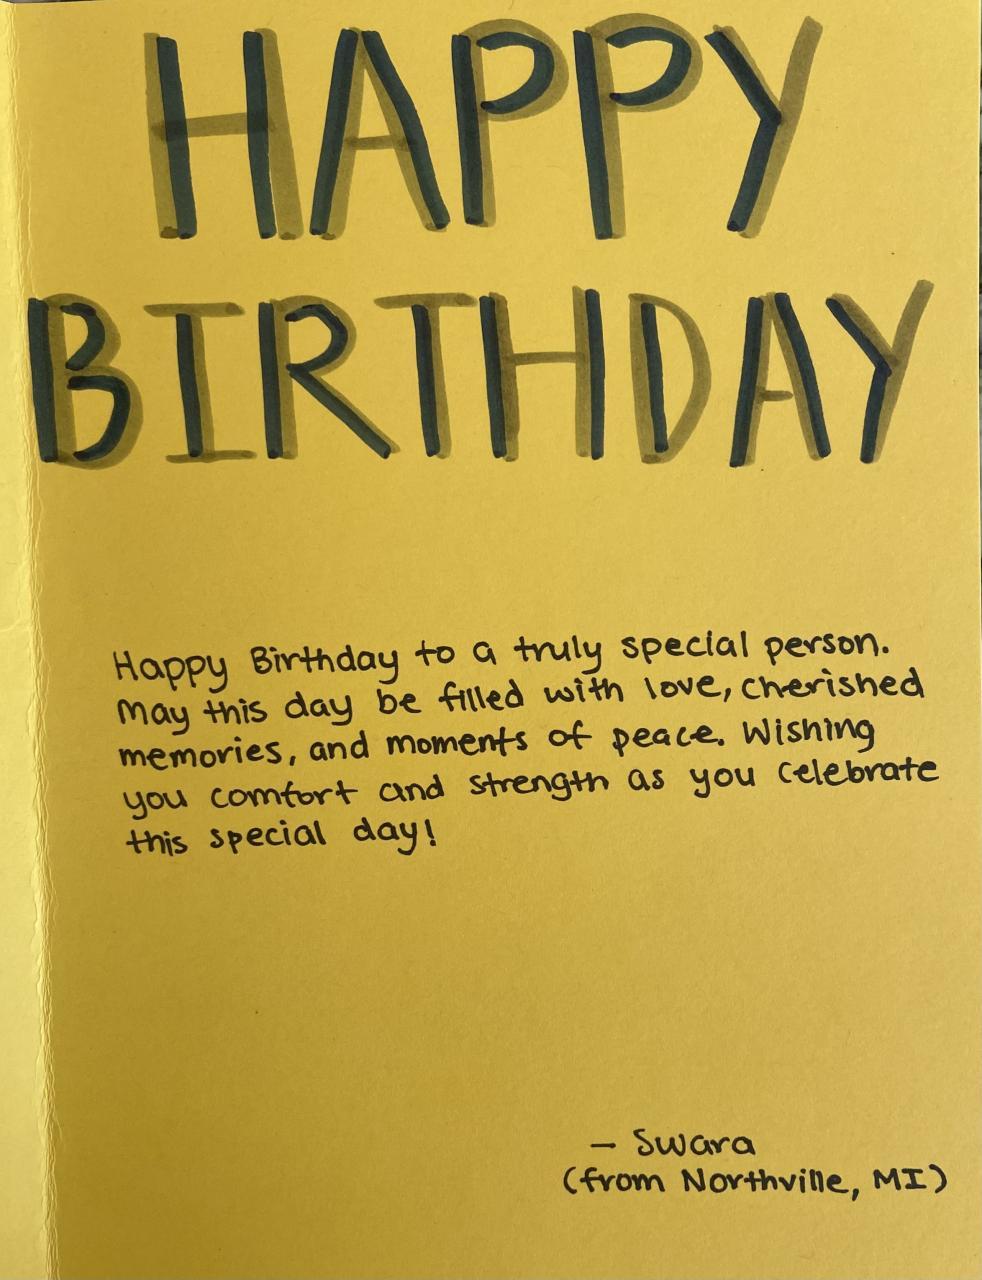 HAPPY
BIRTHDAY
Happy Birthday to a truly special person.
May this day be filled with love, cherished
memories, and moments of peace. Wishing
you comfort and strength as you celebrate
this special day!
– Swara
(from Northville, MI)